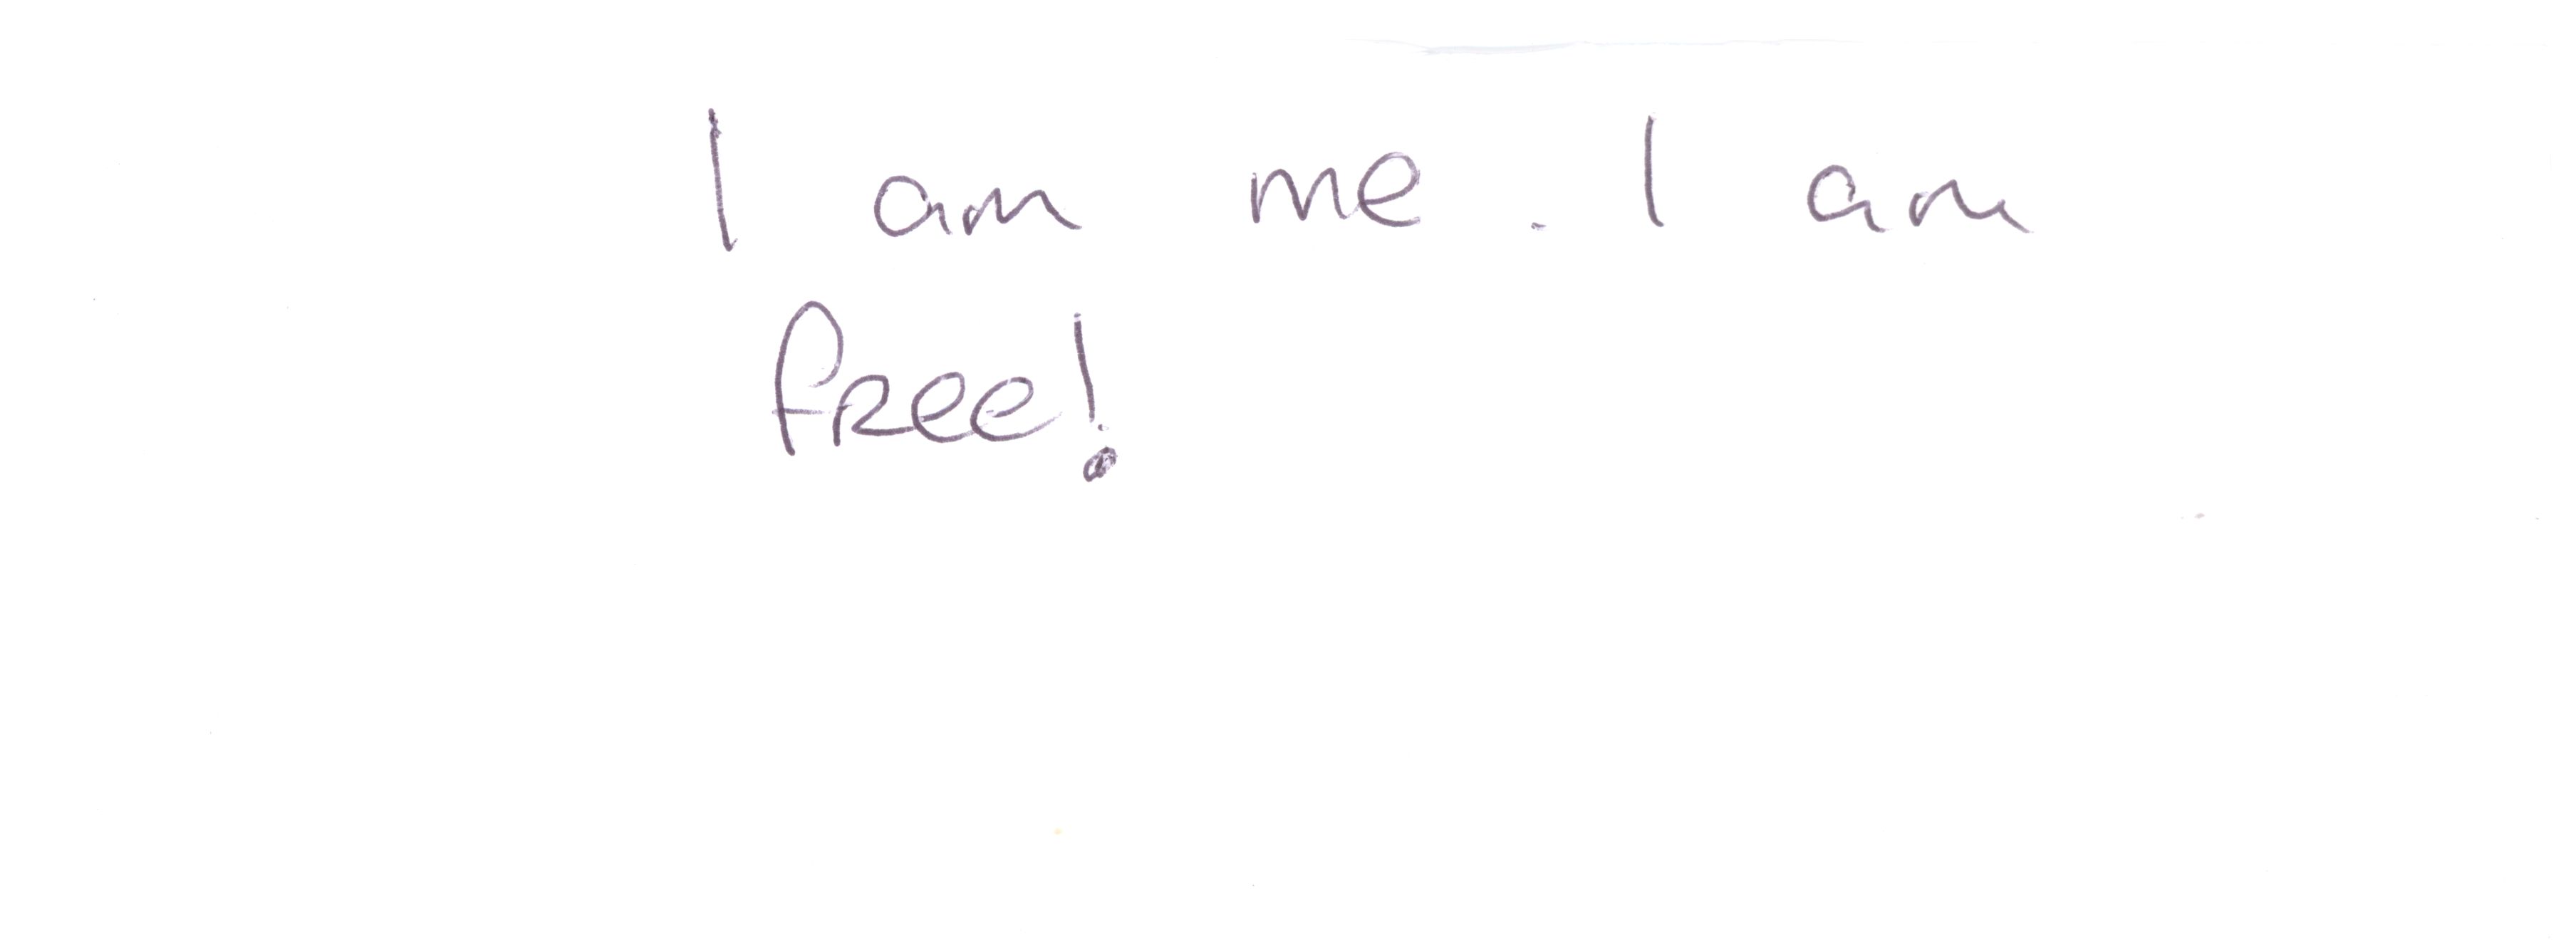 I am me. I am
free!